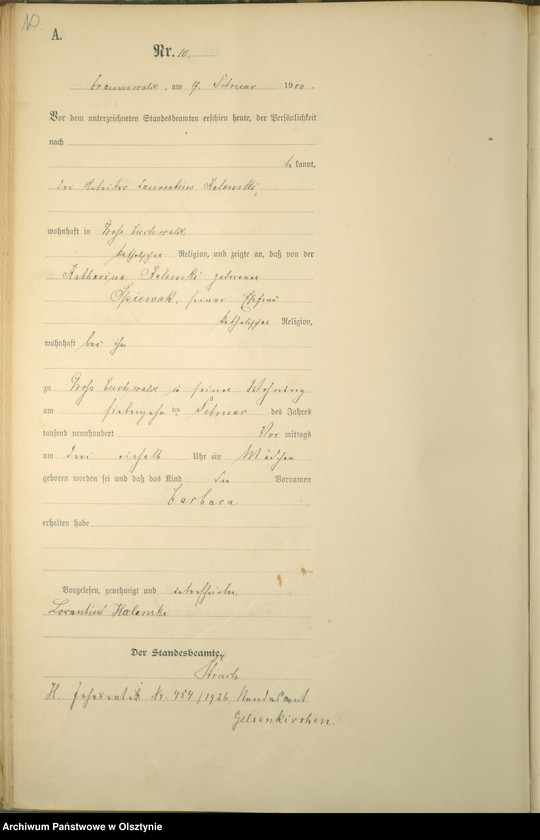 10
A.
Nr. 10.
Braunswalde, am 17. Februar 1900.
Vor dem unterzeichneten Standesbeamten erschien heute, der Persönlichkeit
nach
be kannt,
der Arbeiter Laurentius Kalenski,
wohnhaft in Groß Buchwalde
katholischer Religion, und zeigte an, daß von der
Katharina Kalenski geborenen
Spiewak, seiner Ehefrau
katholischer Religion,
wohnhaft bei ihm
zu Groß Buchwalde in seiner Wohnung
am siebzehn ten Februar des Jahres
tausend neunhundert Vor mittags
um drei einhalb Uhr ein Mädchen
geboren worden sei und daß das Kind den Vornamen
Barbara
erhalten habe
Vorgelesen, genehmigt und unterschrieben
Lorentius Kalenski
Der Standesbeamte.
H. Nr. 454/1926 Standesamt
Gelsenkirchen.
Archiwum Państwowe w Olsztynie